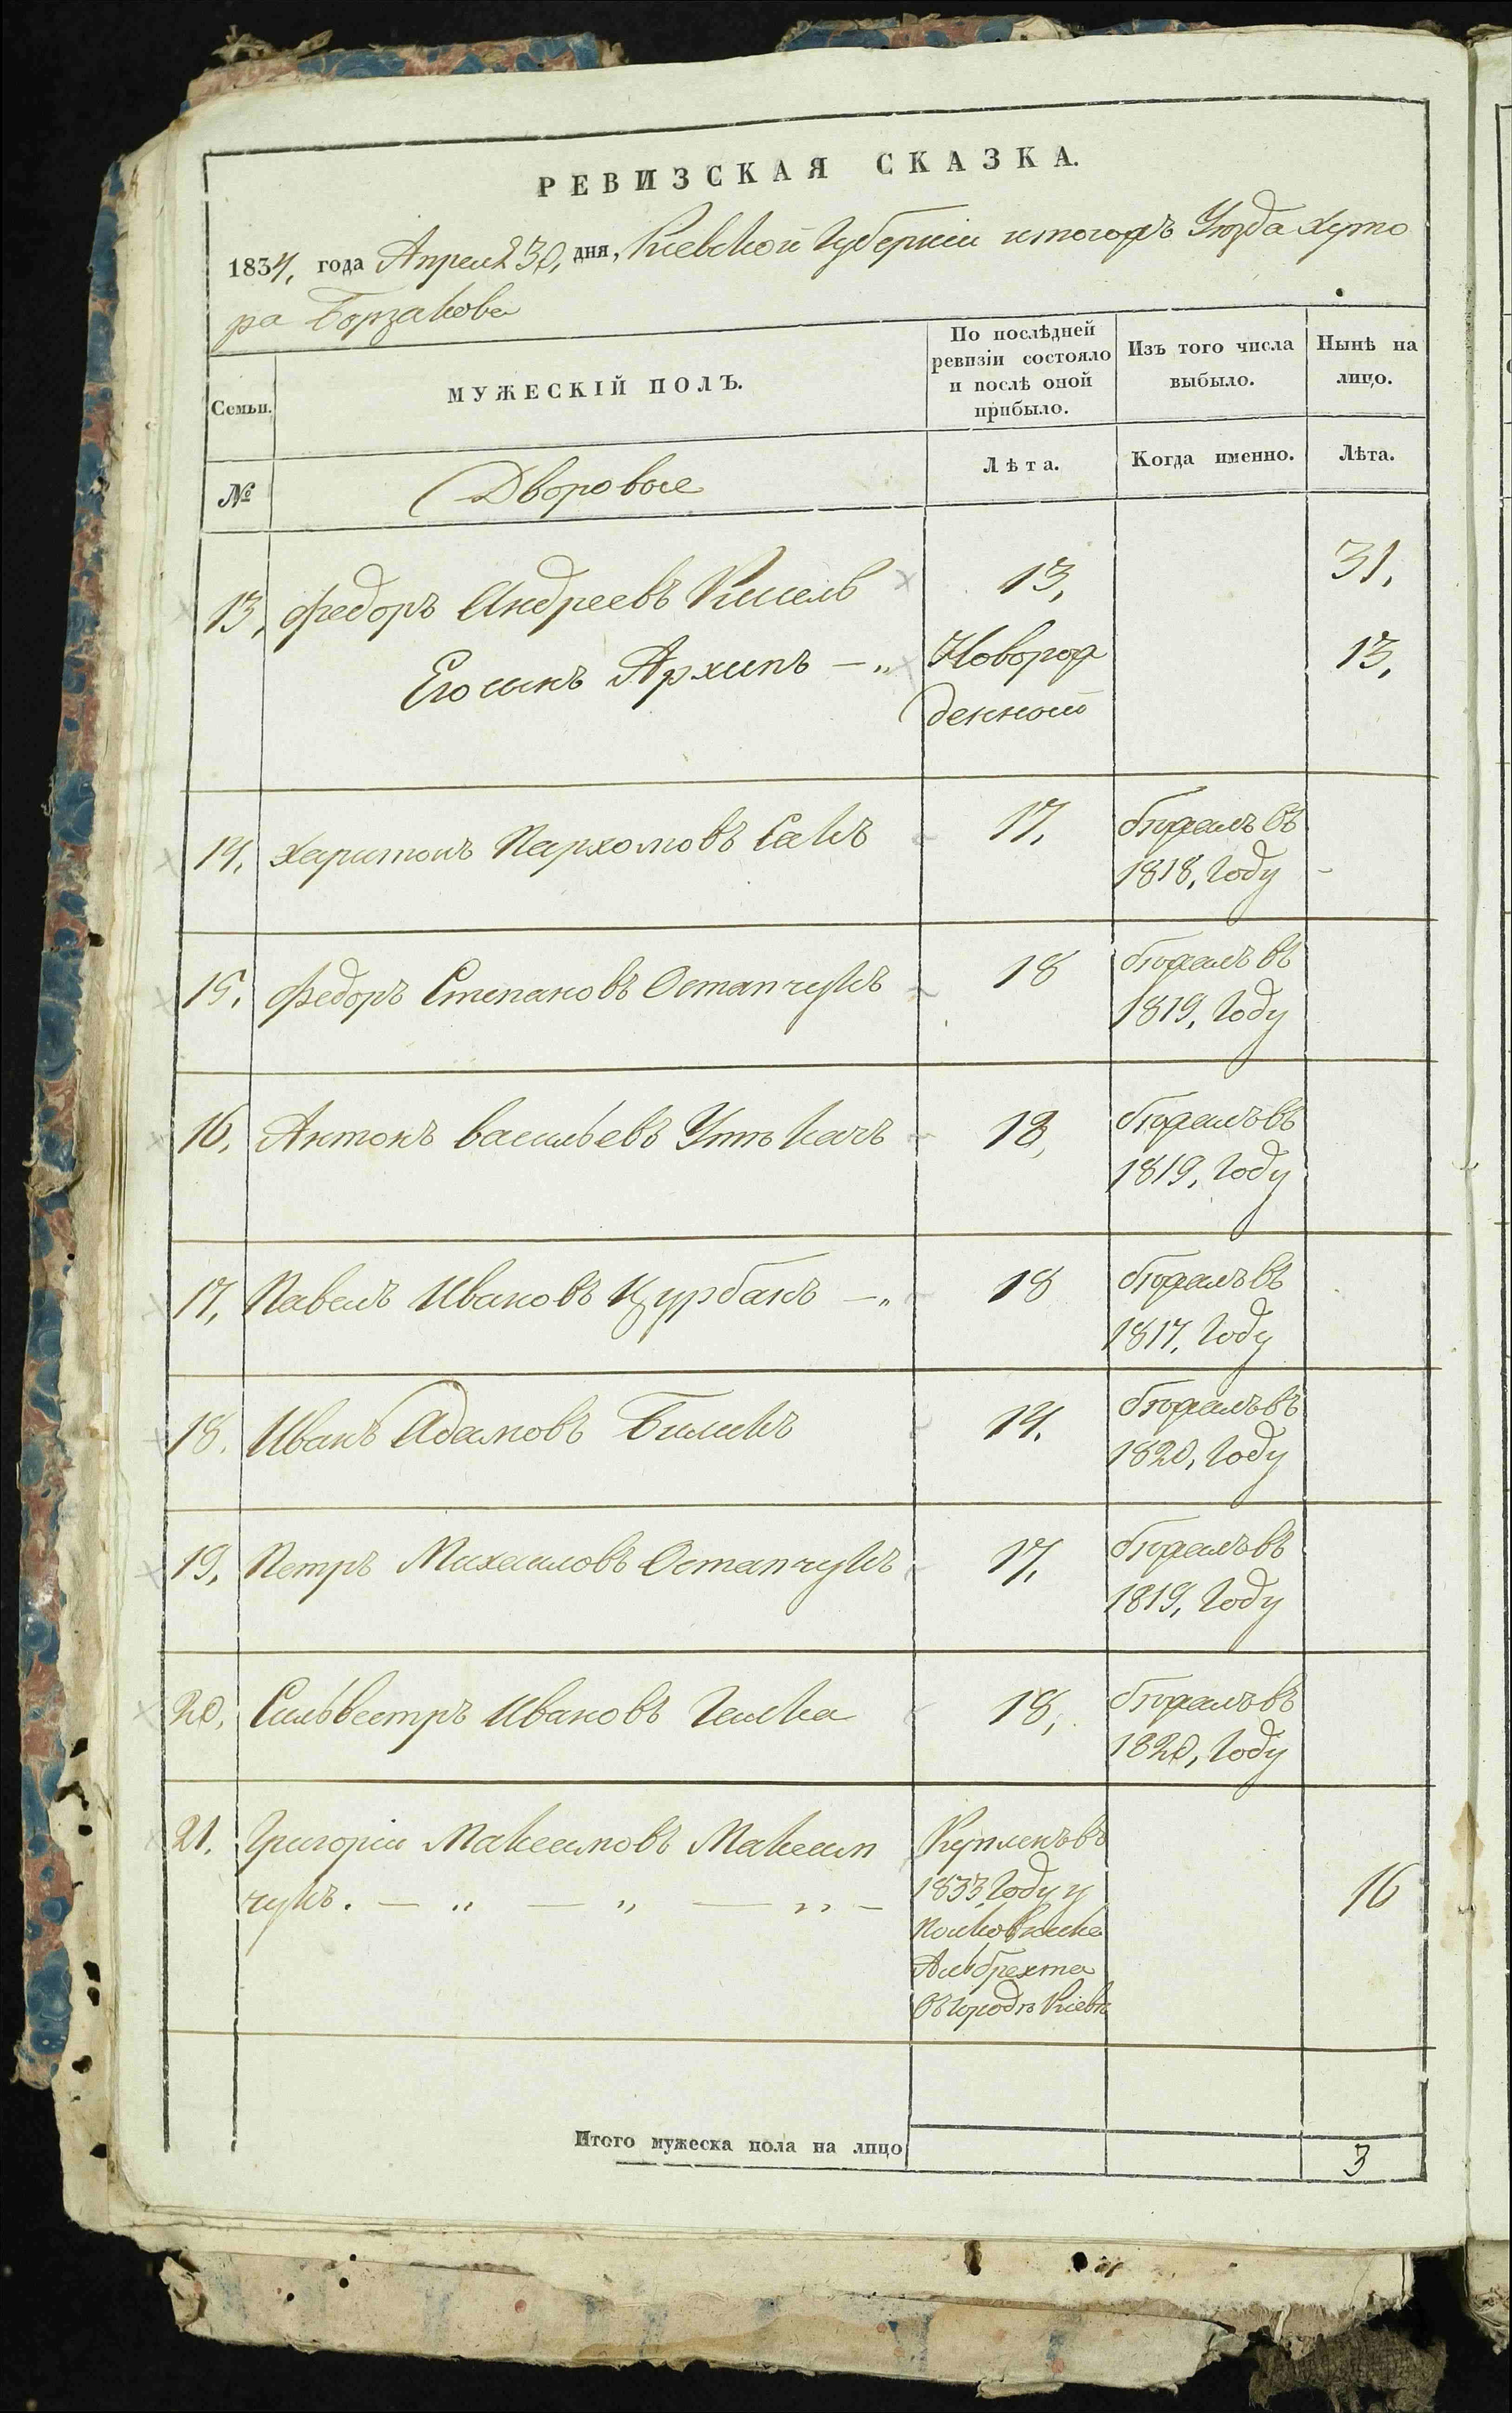 РЕВИЗСКАЯ СКАЗКА.
1834, года Апреля 30, дня, Киевской Губернии и тогожъ Уезда Хуто
ра Борзакова
Семьи.
МУЖЕСКІЙ ПОЛЪ.
По послѣдней ревизіи состояло и послѣ оной прибыло.
Изъ того числа выбыло.
Нынѣ на лицо.
№
Дворовые
Лѣта.
Когда именно.
Лѣта.
13, Федоръ Андреевъ Кисель 13, 31,
Его сынъ Архипъ — „ Новорож 13,
денной
14, Харитонъ Пархомовъ Сакъ 17, бежалъ въ
1818, Году -
15, Федоръ Степановъ Остапчукъ 18 бежалъ въ
1819, Году
16, Антонъ Васильевъ 18, бежалъ въ
1819, Году
17, Павелъ Ивановъ Цурбанъ — „ 18 бежалъ въ
1817, Году
18. Иванъ Адамовъ Биликъ 14. бежалъ въ
1820, Году
19, Петръ Михаиловъ Остапчукъ 17, бежалъ въ
1819, Году
20, Сильвестръ Ивановъ 18, бежалъ въ
1820, Году
21. Григорій Максимовъ Максим Купленъ въ
чукъ. — „ — „ — „ — 1833 Году у 16
Полковника
Альбрехта
въ городѣ Кіевѣ
Итого мужеска пола на лицо 3